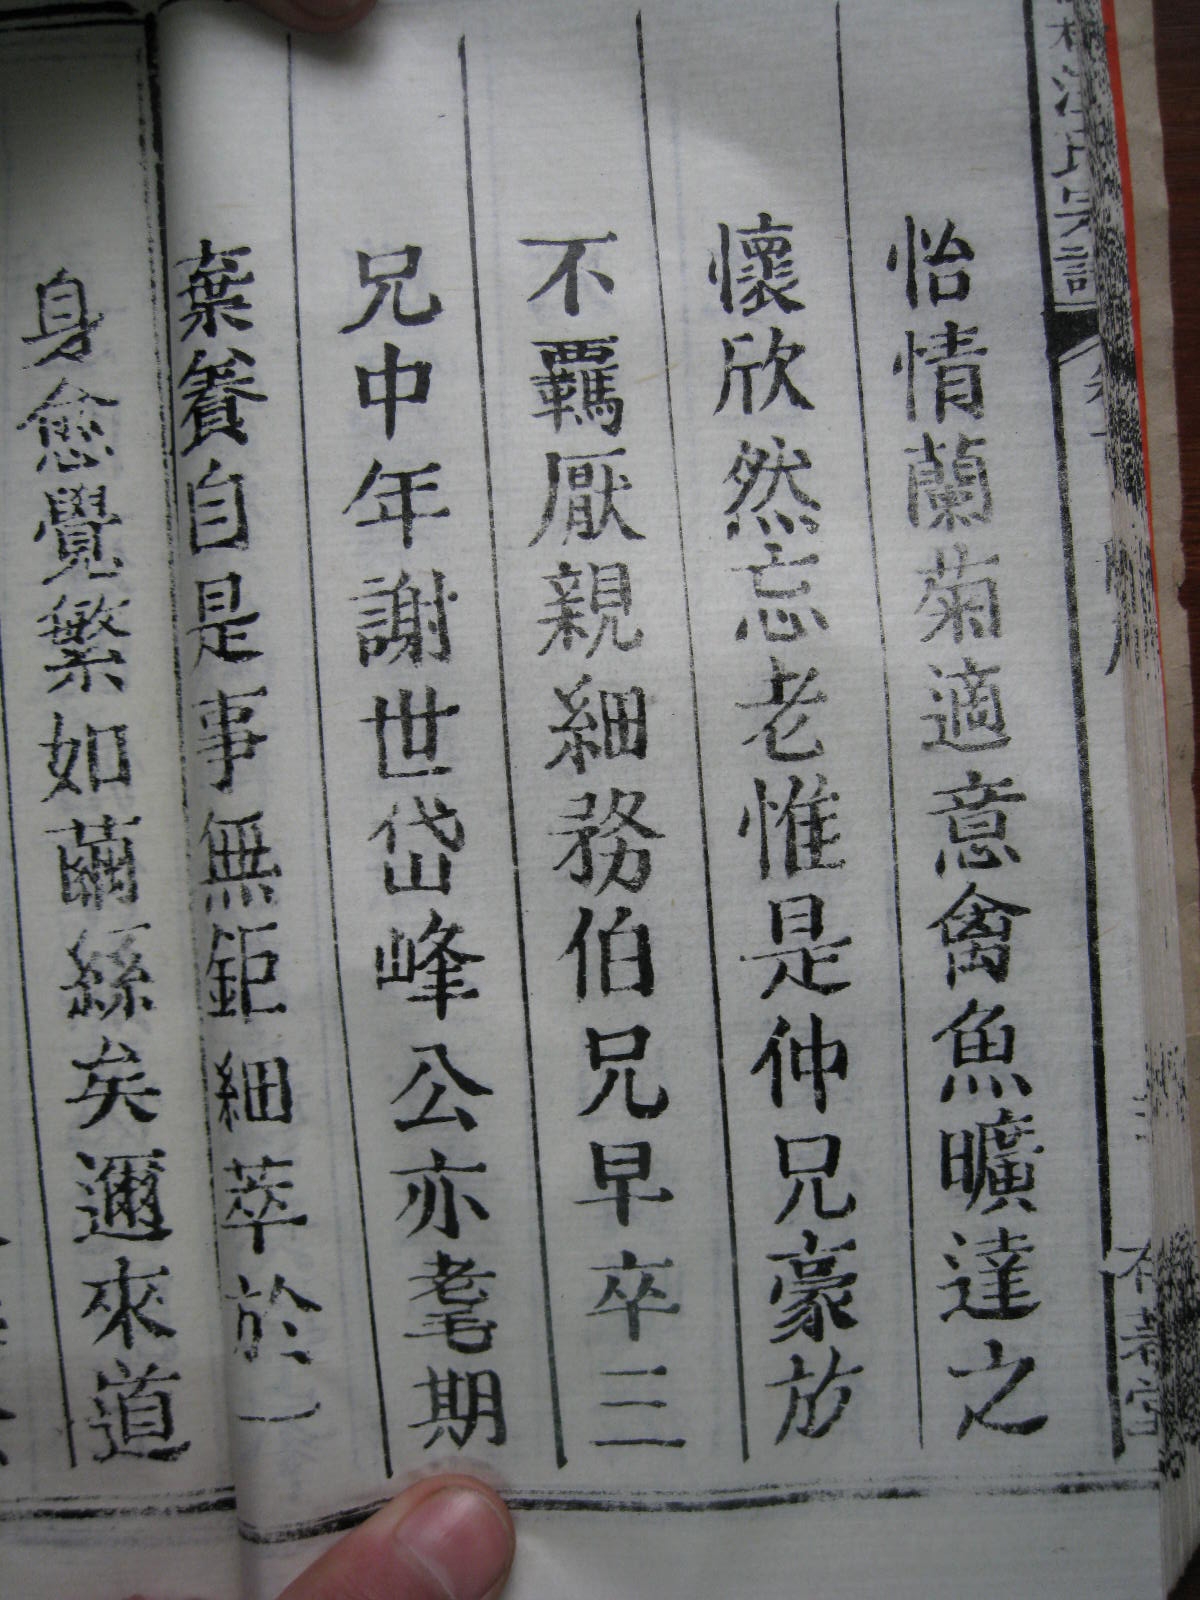 怡情蘭菊適意禽魚曠達之
懷欣然忘老惟是仲兄豪放
不羈厭親細務伯兄早卒三
兄中年謝世岱峰公亦耄期
棄養自是事無鉅細萃於一
身愈覺繁如繭絲矣邇來道